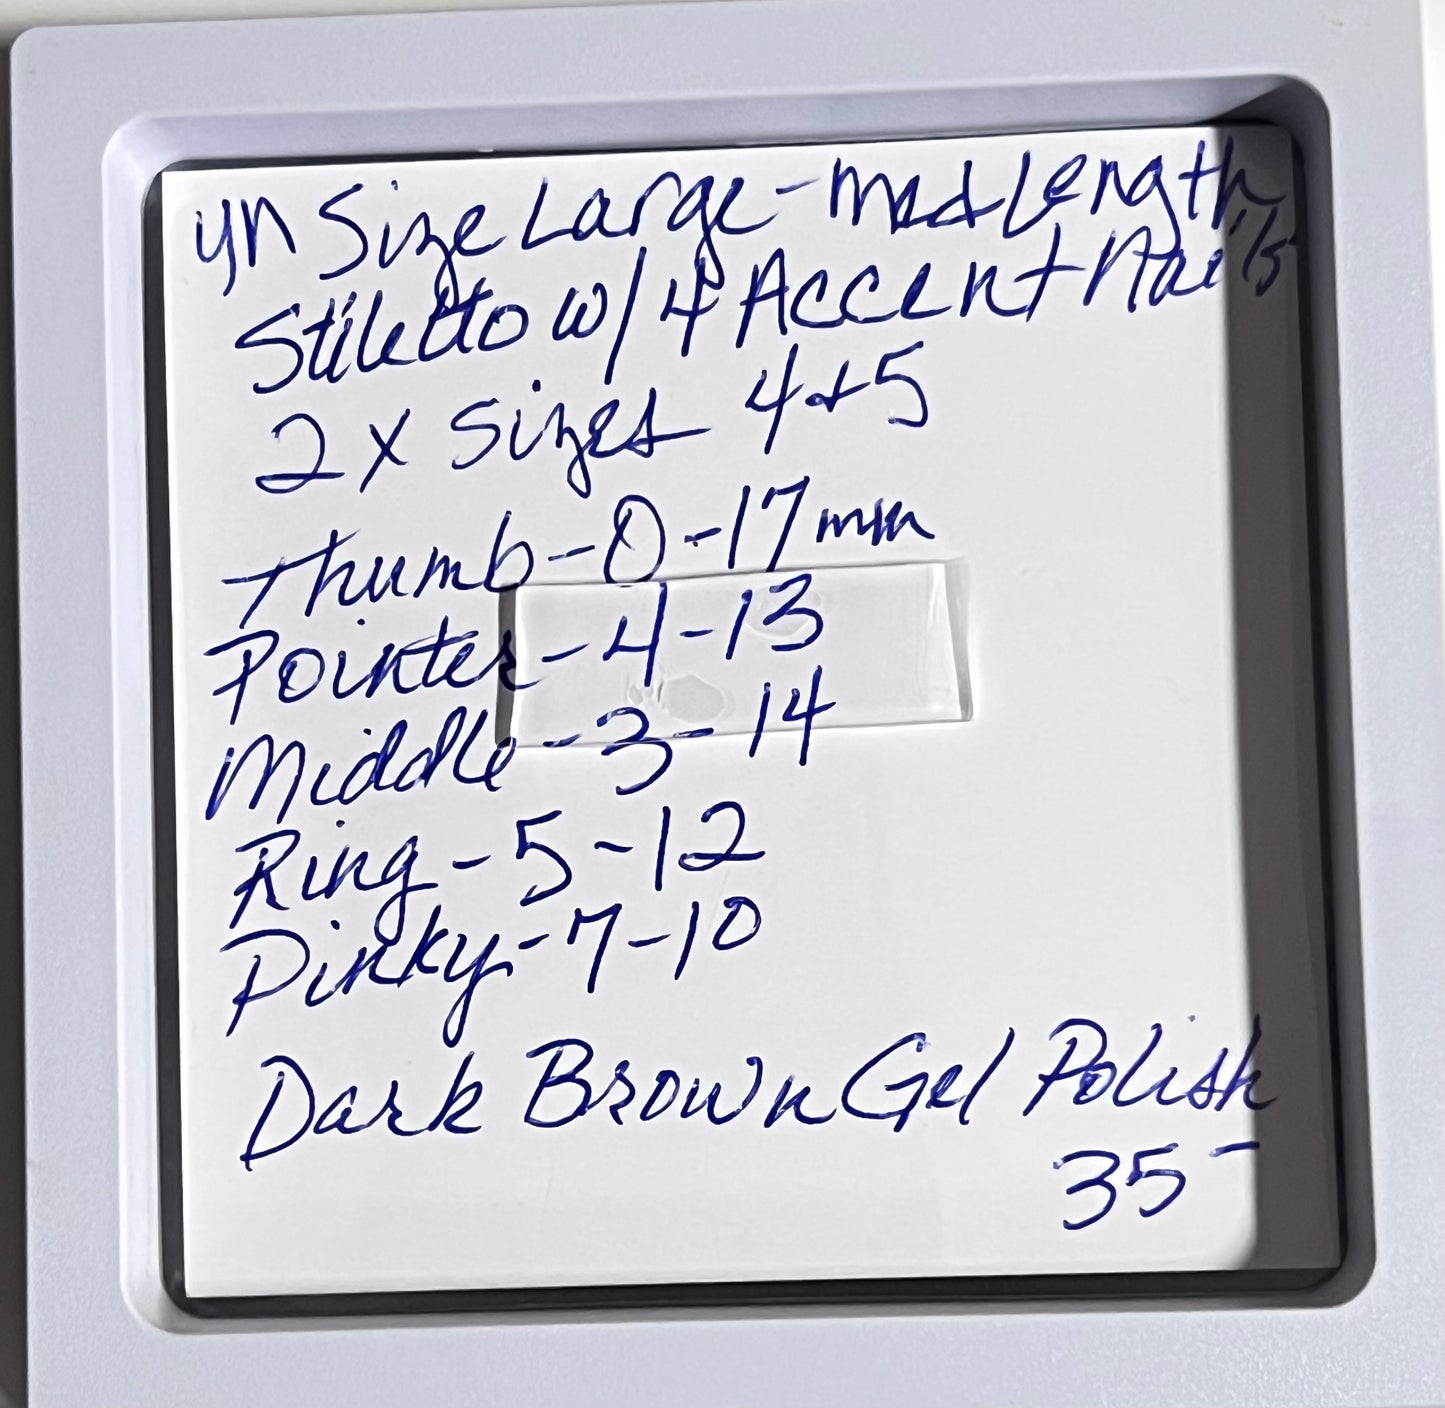 yn Size Large - Med Length
Stiletto w/ 4 Accent Nails
2 x Sizes 4+5
Thumb - 0 - 17mm
Pointer - 4 - 13
Middle - 3 - 14
Ring - 5 - 12
Pinky - 7 - 10
Dark Brown Gel Polish
35-